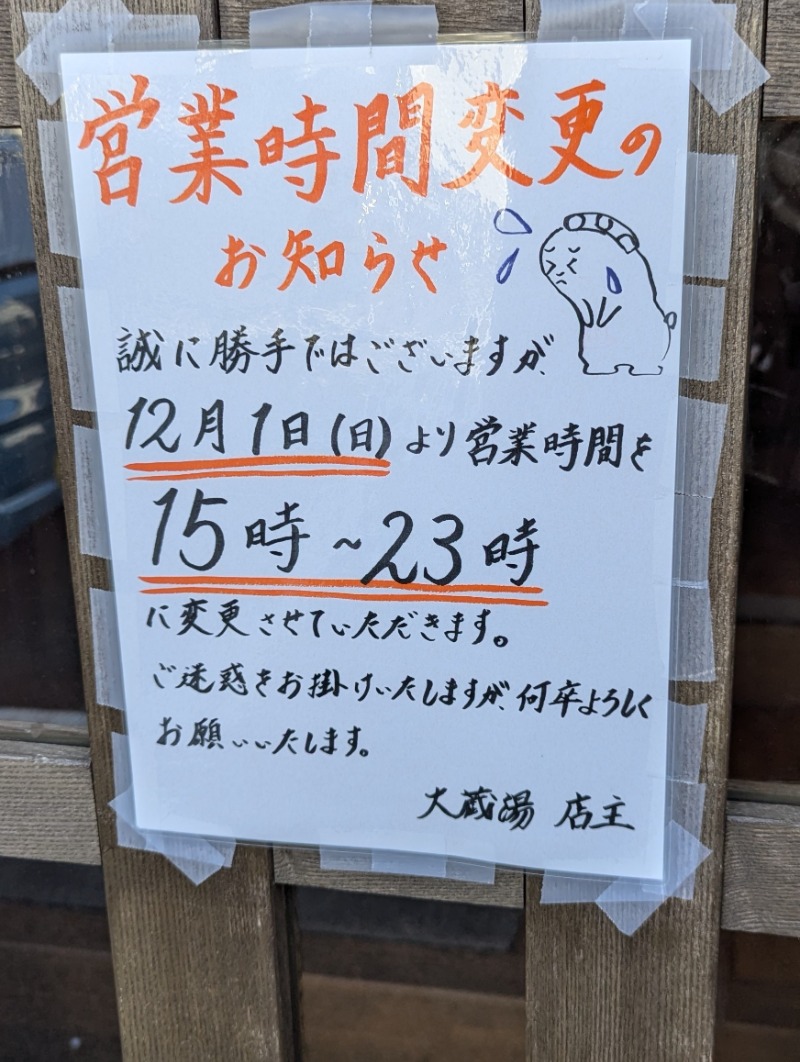 営業時間変更の
お知らせ
誠に勝手ではございますが、
12月1日(日)より営業時間を
15時~23時
に変更させていただきます。
ご迷惑をお掛けいたしますが、何卒よろしく
お願いいたします。
大蔵湯 店主